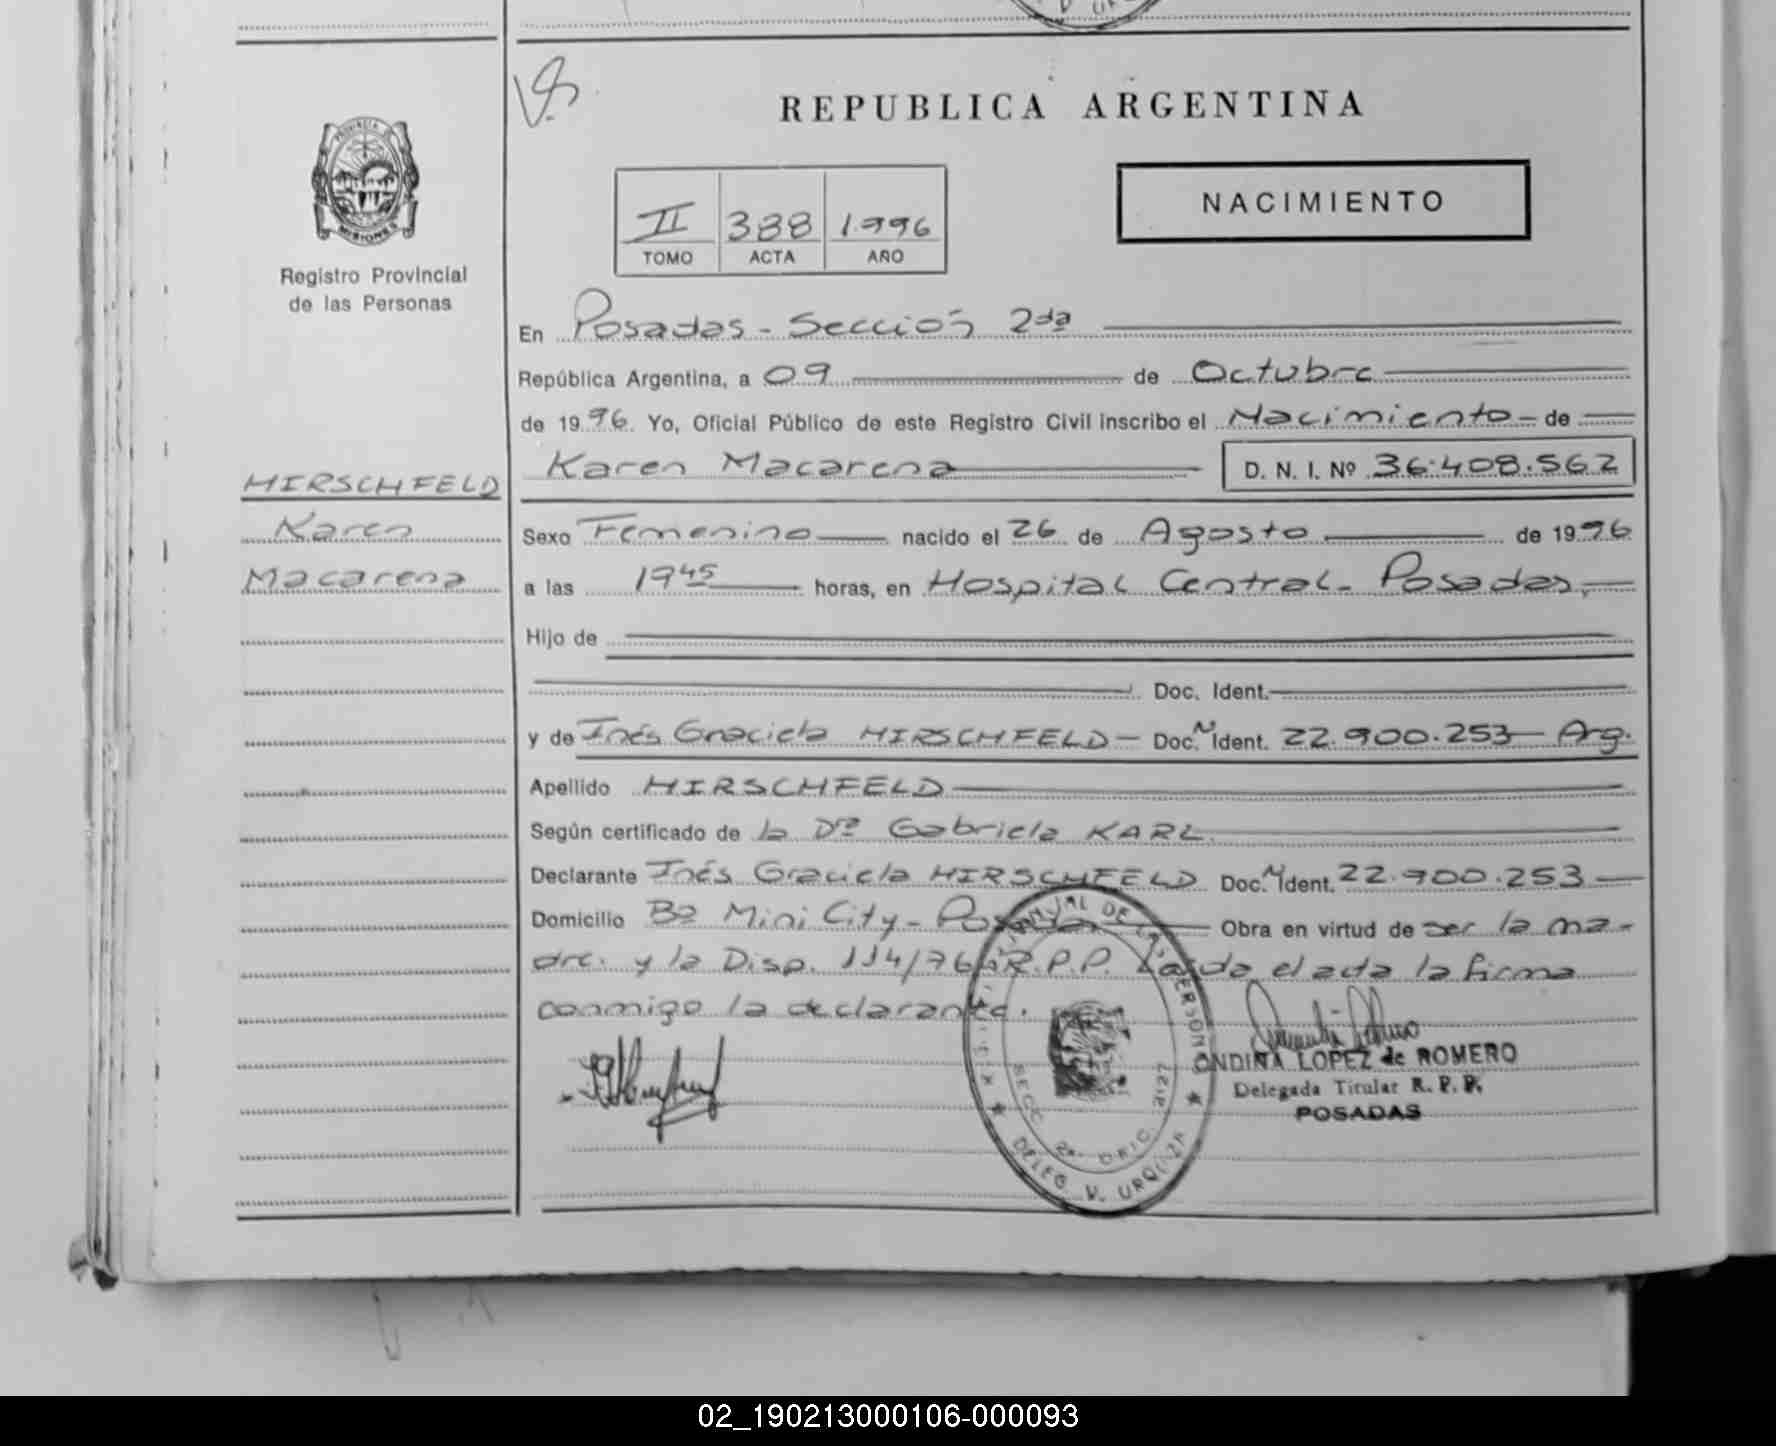 REPUBLICA ARGENTINA
NACIMIENTO
PROVINCIA DE MISIONES
Registro Provincial
de las Personas
II 388 1.996
TOMO ACTA AÑO
En Posadas - Sección 2da
República Argentina, a 09 de Octubre
de 1996. Yo, Oficial Público de este Registro Civil inscribo el Nacimiento de
Karen Macarena D. N. I. Nº 36.408.562
HIRSCHFELD
Karen
Macarena
Sexo Femenino nacido el 26 de Agosto de 1996
a las 19 45 horas, en Hospital Central - Posadas.
Hijo de
Doc. Ident.
y de Inés Graciela HIRSCHFELD - Doc. N Ident. 22.900.253 - Arg.
Apellido HIRSCHFELD
Según certificado de la Dra Gabriela KARL.
Declarante Inés Graciela HIRSCHFELD Doc. N Ident. 22.900.253
Domicilio Bº Mini City - Posadas Obra en virtud de ser la ma-
dre. y la Disp. 114/76 R.P.P. Leída el acta la firma
conmigo la declarante.
ONDINA LOPEZ de ROMERO
Delegada Titular R. P. P.
POSADAS
DE LAS PERSONAS
SECC. 2a. OFIC.
DELEG. V. URQUIZA
02_190213000106-000093